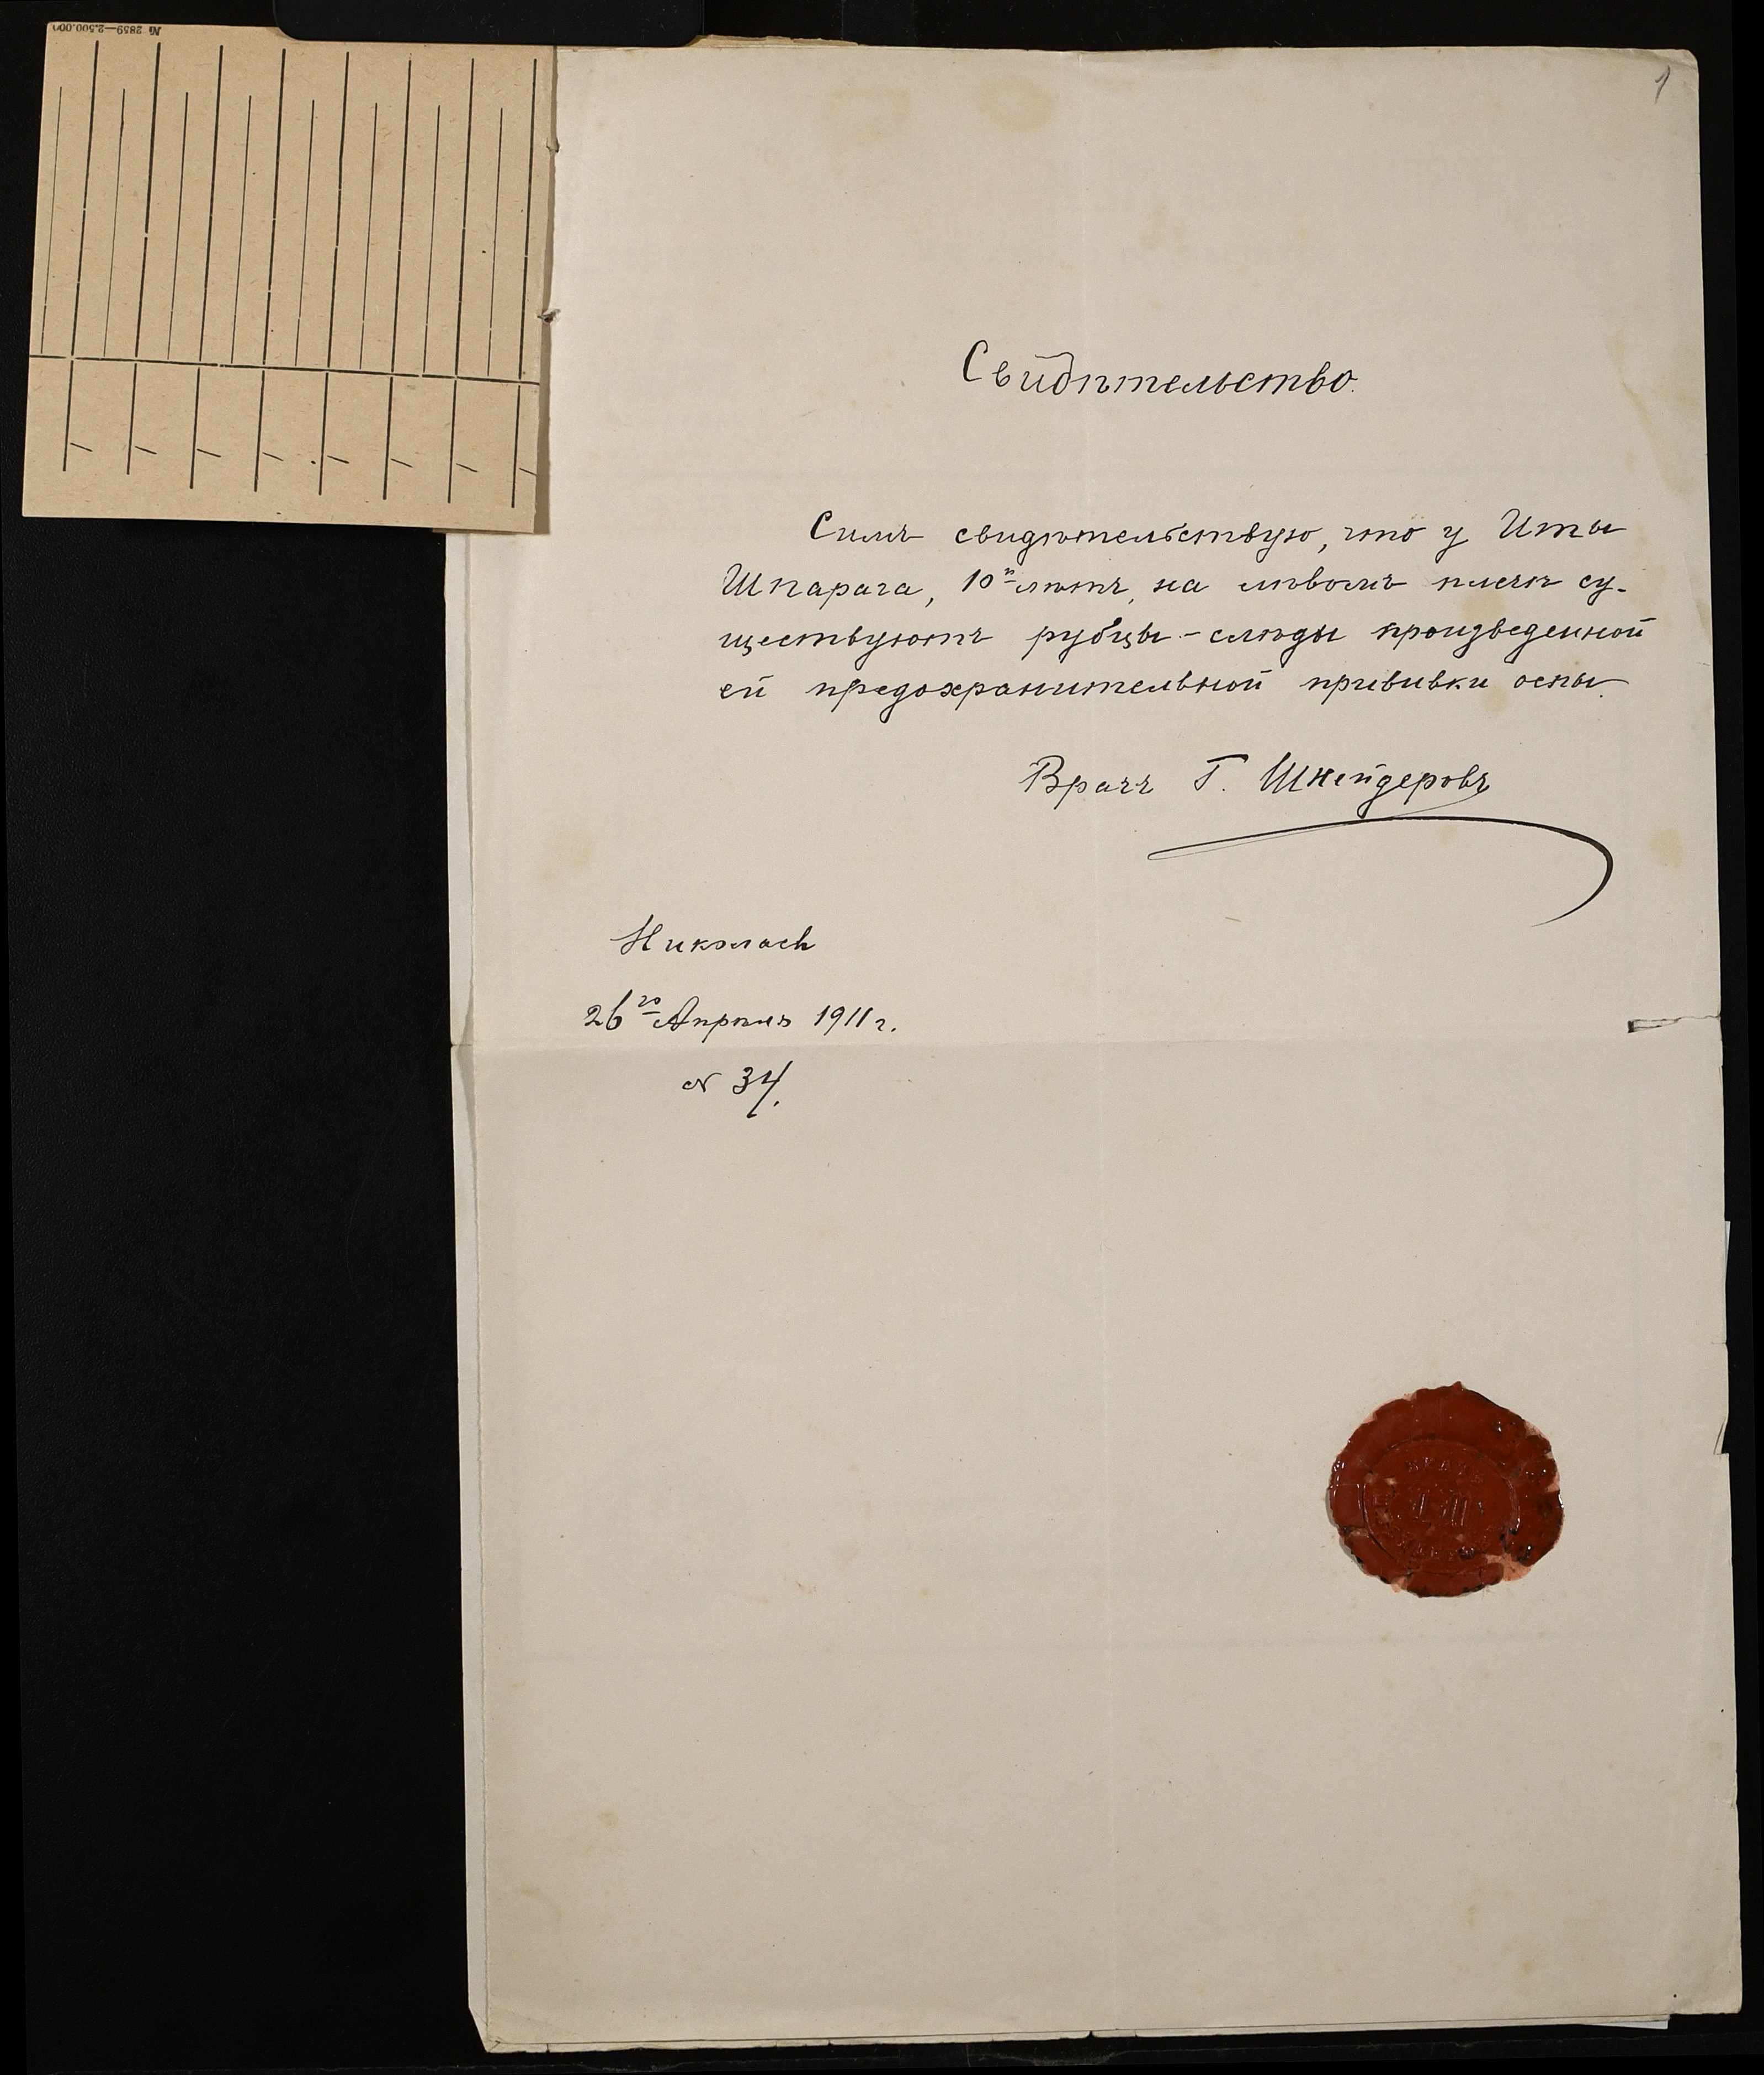 № 2859—2.500.000
1
Свидѣтельство.
Симъ свидѣтельствую, что у Иты
Шпарага, 10ᵗⁱ лѣтъ, на лѣвомъ плечѣ су-
ществуютъ рубцы - слѣды произведенной
ей предохранительной прививки оспы.
Врачъ Г. Шнейдеровъ
Николаевъ
26го Апрѣля 1911 г.
№ 34.
ВРАЧЪ